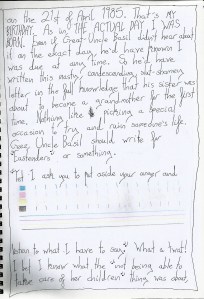 on the 21st of April 1985. That's MY
BIRTHDAY. As in THE ACTUAL DAY I WAS
BORN. Even if Great Uncle Basil didn't hear about
it on the exact day, he'd have known I
was due at any time. So he'd have
written this nasty, condescending, slut-shaming
letter in the full knowledge that his sister was
about to become a grandmother for the first
time. Nothing like picking a special
occasion to try and ruin someone's life.
Great Uncle Basil should write for
"Eastenders" or something.
"Yet I ask you to put aside your anger and
listen to what I have to say." What a twat!
I bet I know what the "not being able to
take care of her children" thing was about,